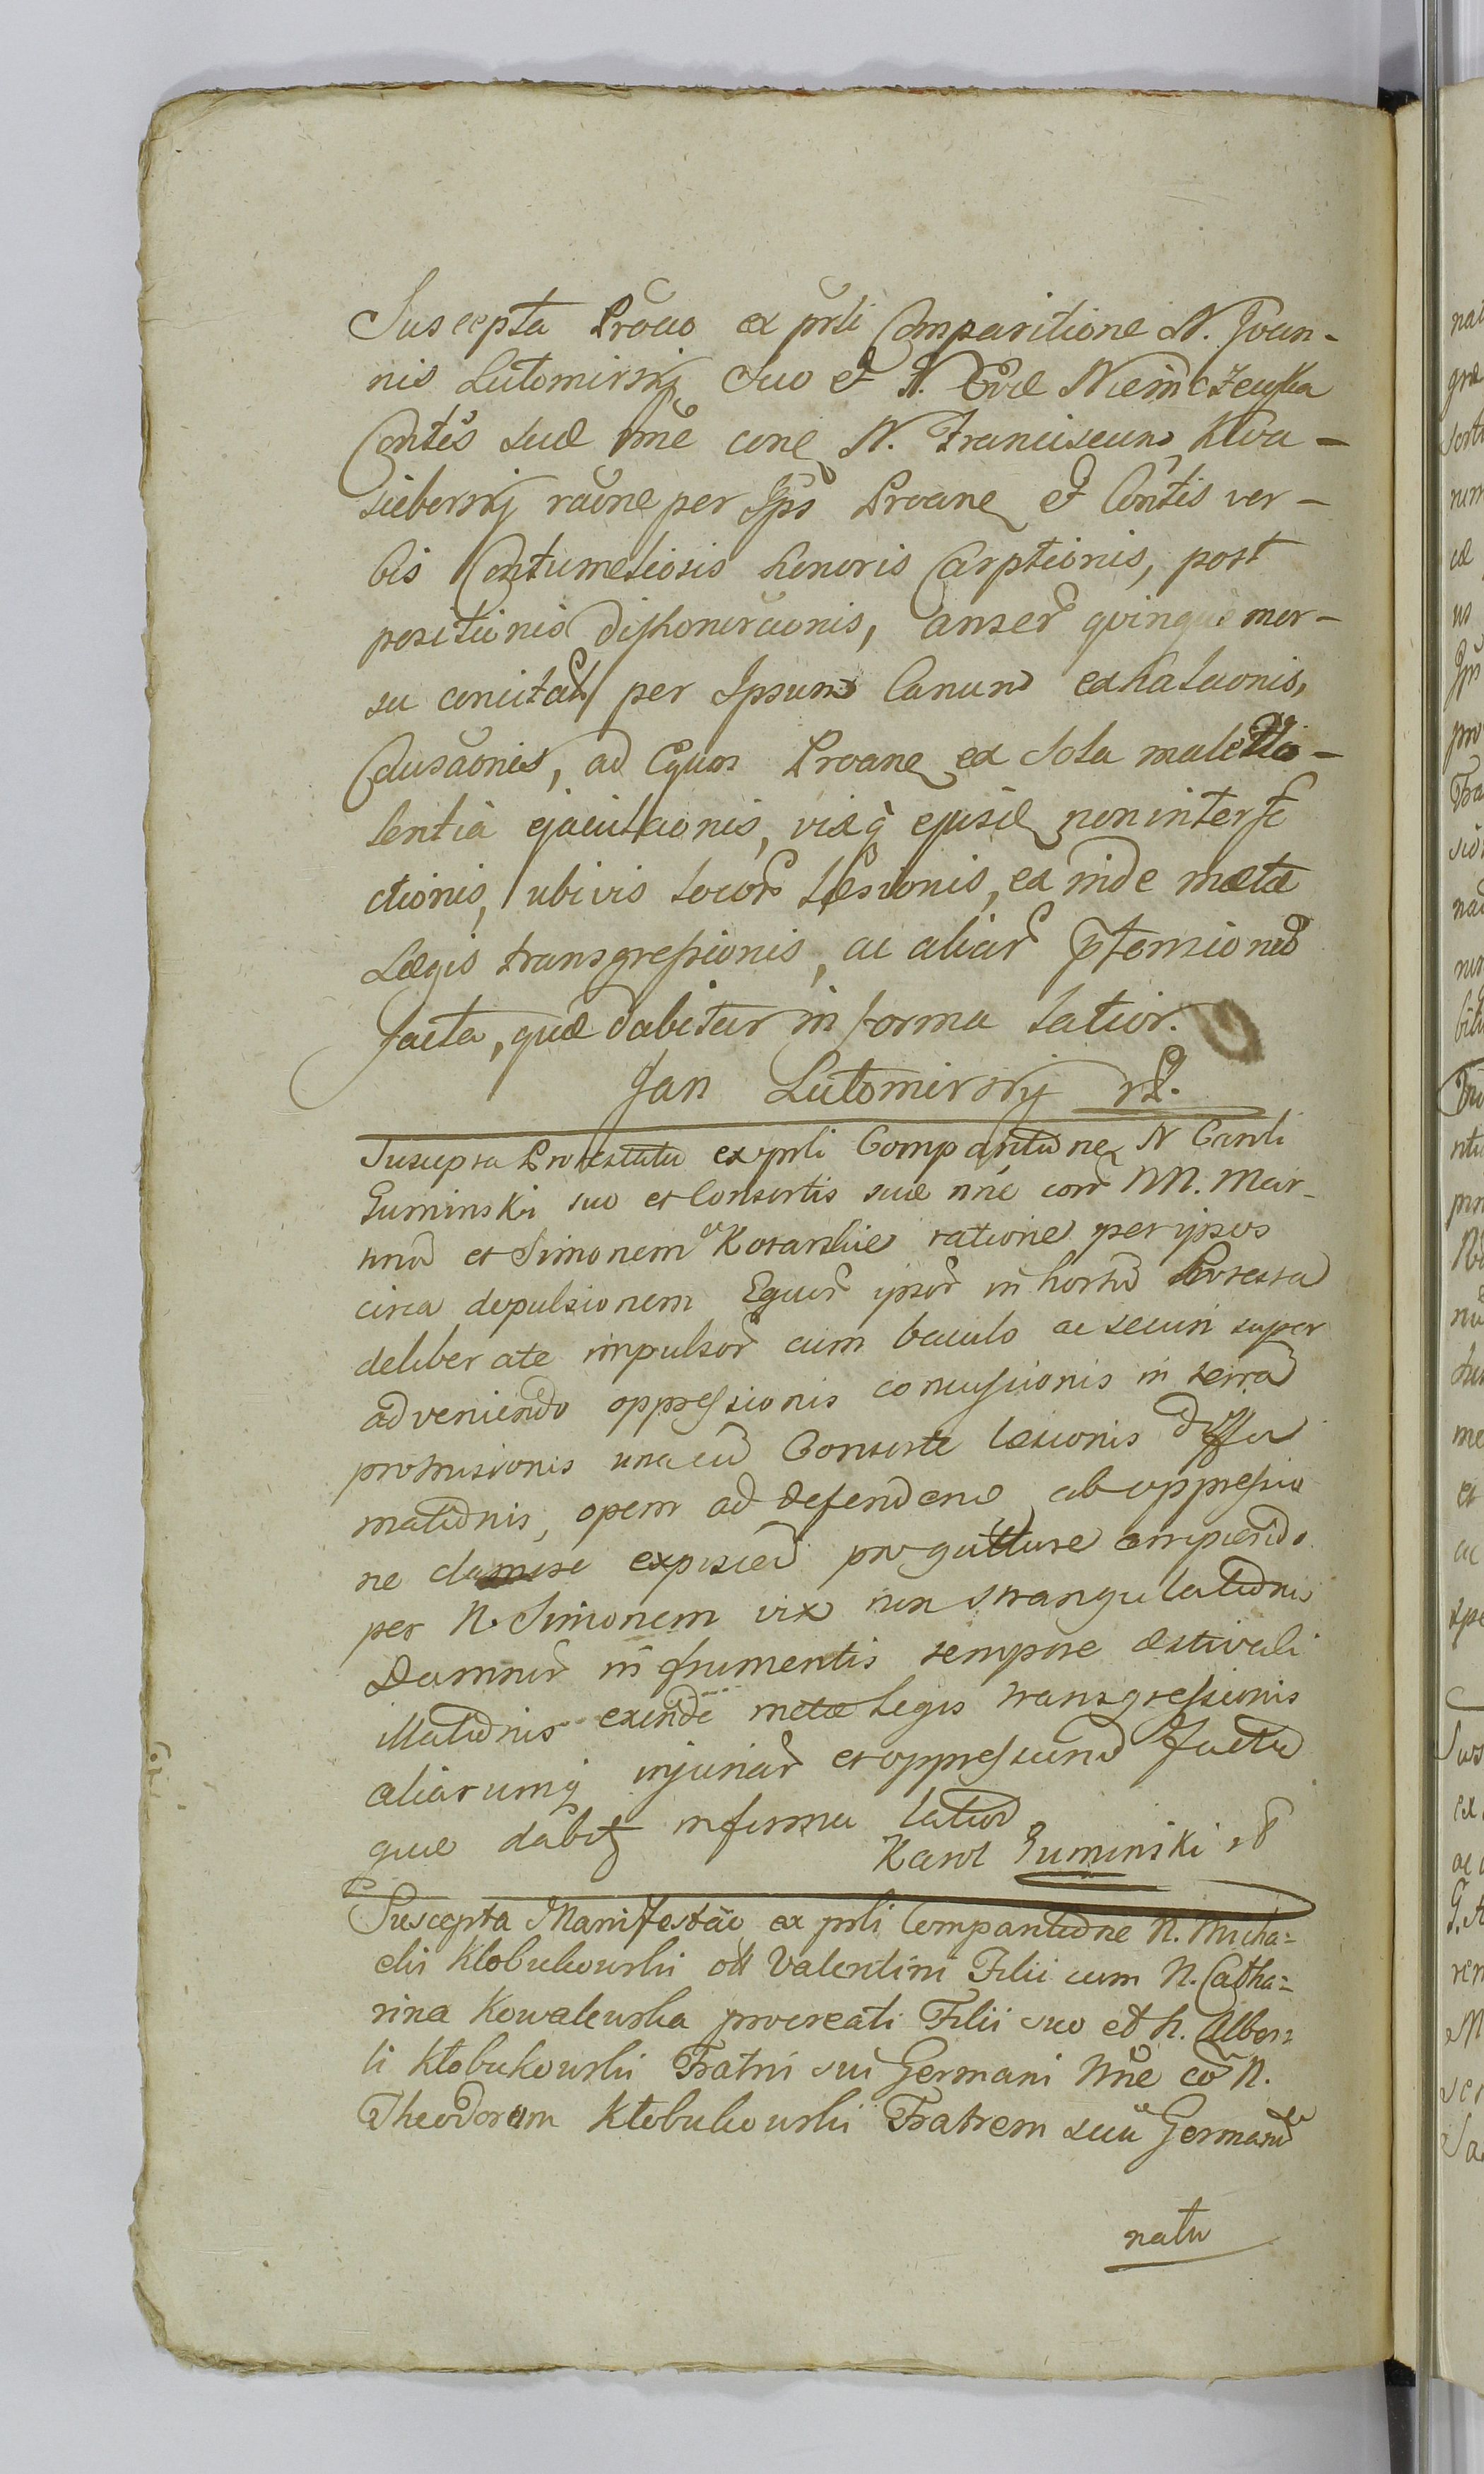 Suscepta Proāo ex prli Comparitione N. Joan-
nis Lutomirskj Suo et N. Evæ Niemczewska
Contis suæ nne cone N. Franciscum Kwa-
sieborskj raōne per Ips Proane et Contis ver-
bis Contumeliosis honoris Carptionis, post
positionis dishonoraōnis, anser quinque mor-
su concitat per Ipsum Canum exhalaonis,
Clusaōnis, ad Equos Proane ex Sola malevo-
lentia ejaculaonis, vixq ejusd non interfe
ctionis, ubivis locor læsionis, ex inde metæ
Legis transgressionis, ac aliar ptensionu
facta, quæ dabitur in forma latior.
Jan Lutomirskj
Suscepta Protestatio ex prli Comparitione N Caroli
Guminski suo et Consortis suæ nne con NN. Mar-
tinu et Simonem Kotarskie ratione per ipsos
circa depulsionem Equor ipsor in hortu
deliberate impulsor cum baculo ac securi super
adveniendo oppressionis concussionis in terra
prostrusionis una cu Consorte læsionis diffa
mationis, opem ad defenden ab oppressio
ne pro gutture arripiendo
per N. Simonem vix non strangulationis
Damnor in frumentis tempore æstivali
illationis exinde metæ Legis transgressionis
aliarumq injuriar et oppressionu facta
quæ dabit in forma latior
Karol Guminski
Suscepta Manifestāo ex prli Comparitione N. Micha=
elis Kłobukowski oll Valentini Filii cum N. Catha=
rina Kowalewska procreati Filii suo et N. Alber=
ti Kłobukowski Fratri sui Germani nne cō N.
Theodorum Kłobukowski Fratrem suu German
natu